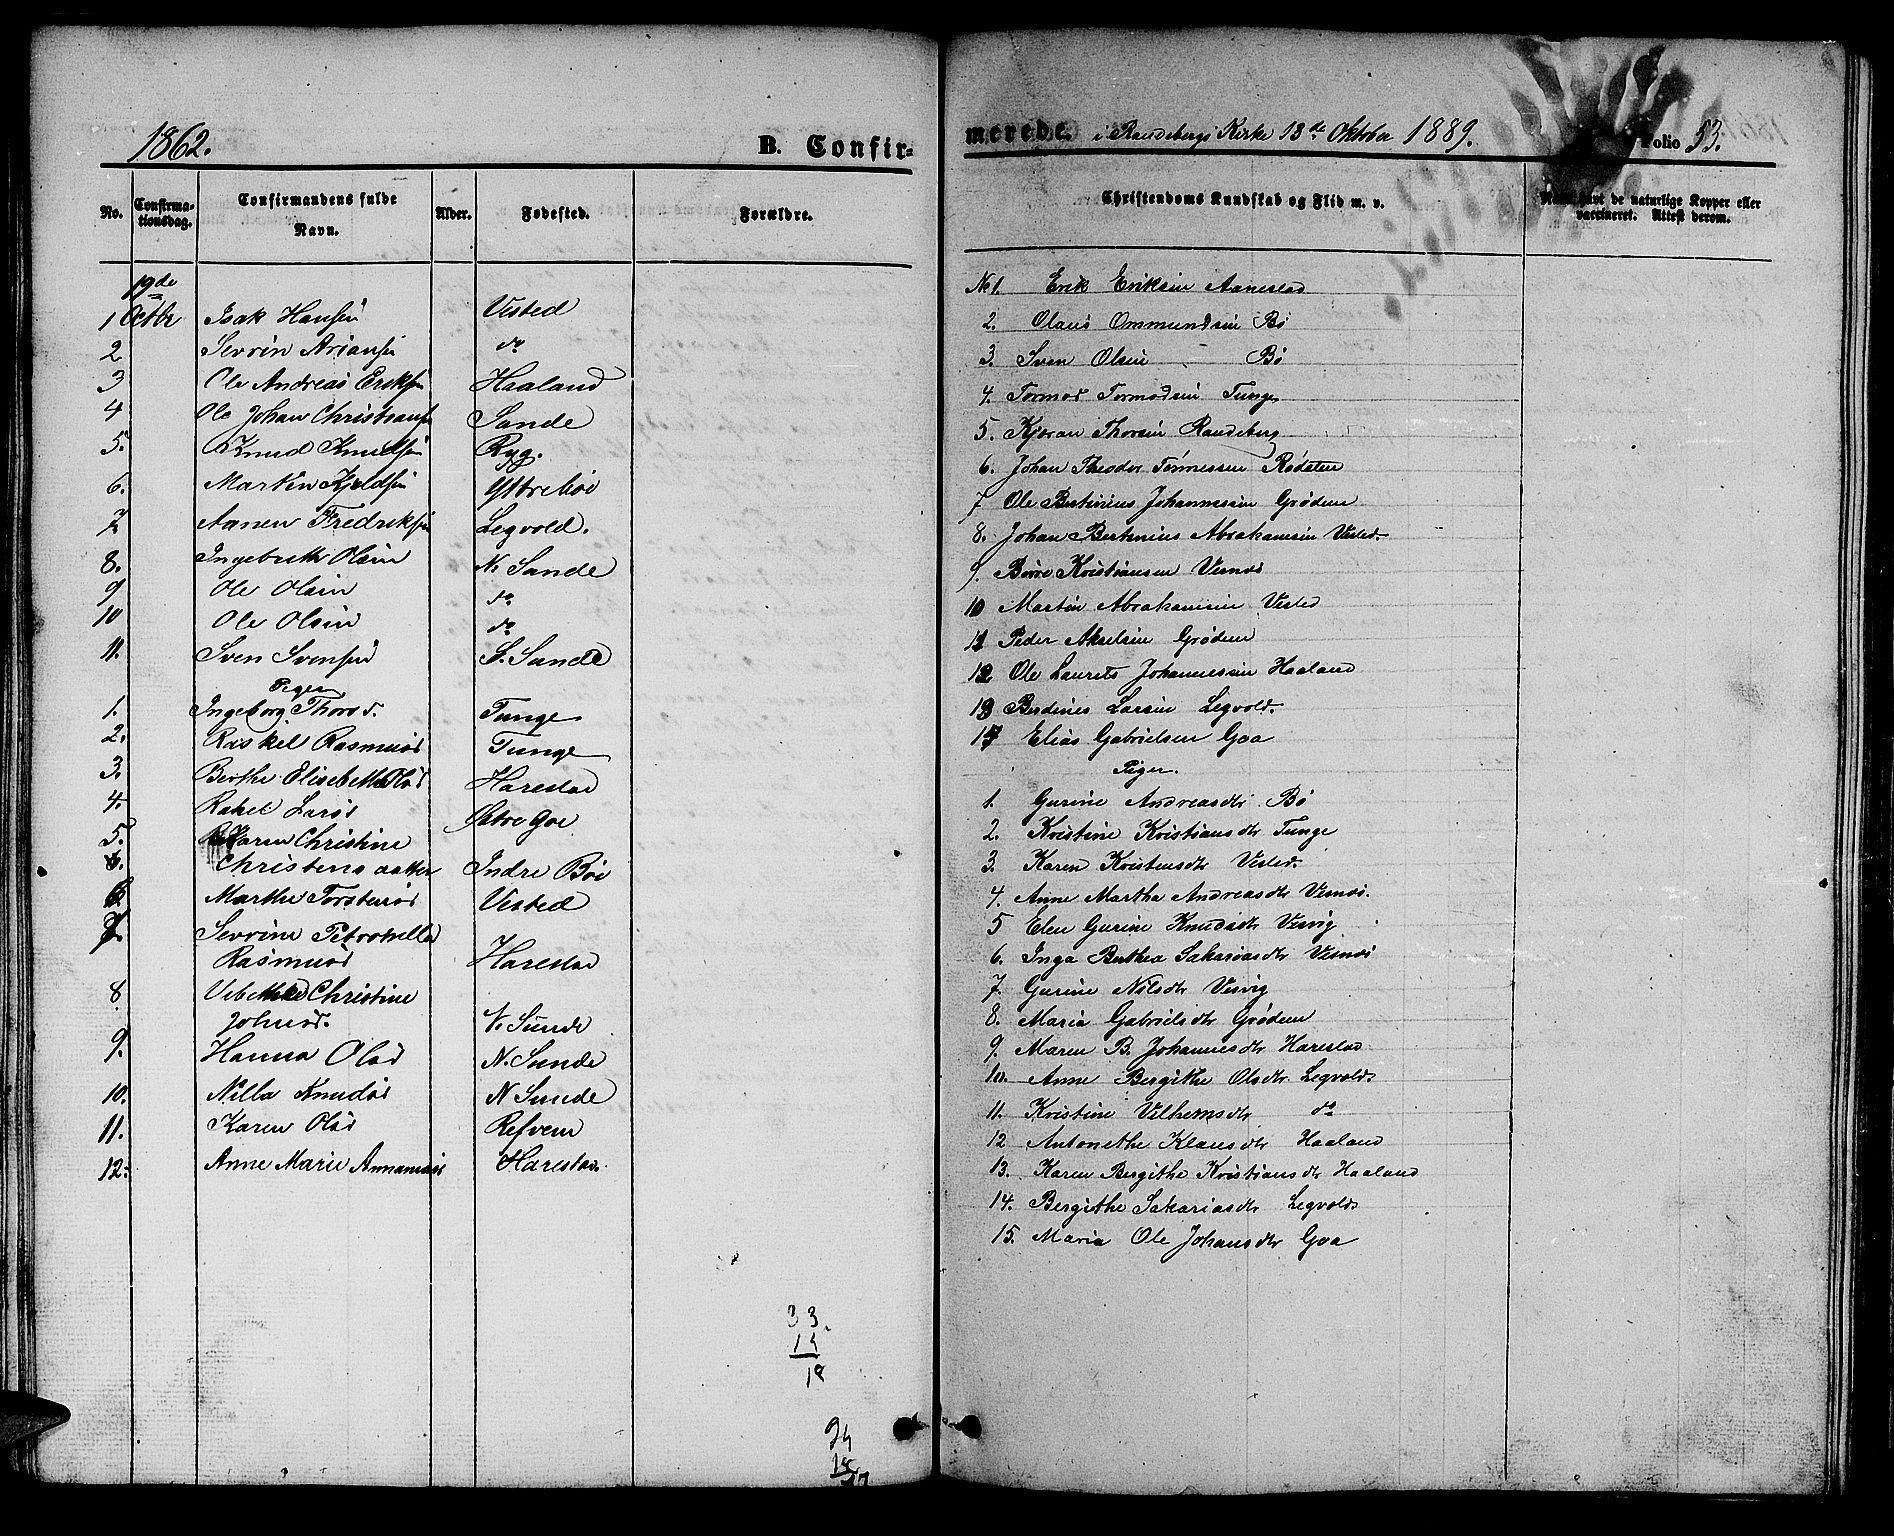 1862.
B. Confir-
No.
Confirma-
tionsdag.
Confirmandens fulde
Navn.
Alder.
Fødested.
Forældre.
19de
1 Octbr Isak Hansen Visted
2 Sevrin Ariansen do
3 Ole Andreas Eriksen Haaland
4 Ole Johan Christiansen Sande
5. Knud Knudsen Ryg.
6. Martin Kjeldsen Yttrebøe
7 Aanen Fredriksen Legvold.
8. Ingebreth Olsen N. Sande
9 Ole Olsen do
10 Ole Olsen do
11. Sven Svensen S. Sande
Piger
1. Ingeborg Thorsd. Tunge
2. Raskel Rasmusd Tunge
3. Berthe Elisebeth Olsd Harestad
4. Rakel Larsd Østre Goe
5. Karen Christine
Christensdatter Indre Bøe
6 Marthe Torstensd Visted
7. Sevrine Petronelle
Rasmusd Harestad
8 Vibekke Christine
Johnsd. N. Sunde
9. Hanna Olsd N. Sunde
10. Nilla Knudsd N Sunde
11. Karen Olsd Refvem
12. Anne Marie Harestad
33.
15
18
merede. i Randebergs Kirke 13de Oktober 1889.
Folio 53.
Christendoms Kundskab og Flid m. v.
de naturlige Kopper eller
vaccineret. Attest derom.
No 1. Erik Eriksen Aanestad
2. Olaus Ommundsen Bø
3. Sven Olsen Bø
4. Tormod Tormodsen Tunge
5. Kjøran Thorsen Randeberg
6. Johan Theodor Tønnessen Rødsten
7 Ole Bertinius Johannessen Grødem
8. Johan Bertinius Abrahamsen Visted.
9. Børre Kristiansen Visnæs
10 Martin Abrahamsen Visted
11 Peder Akselsen Grødem
12 Ole Laurits Johannessen Haaland
13 Berdines Larsen Legvold.
14 Elias Gabrielsen Goa
Piger.
1. Gurine Andreasdtr Bø
2. Kristine Kristiansdtr Tunge
3. Karen Kristensdtr Visted.
4. Anne Martha Andreasdtr Visnæs.
5 Elen Gurine Knudsdtr Visvig
6. Inga Berthea Sakariasdtr Visnæs
7. Gurine Nilsdtr Visvig
8. Maria Gabrielsdtr Grødem
9. Maren B. Johannesdtr Harestad
10. Anne Bergithe Olsdtr Legvold.
11. Kristine Vilhemsdtr do
12 Antonethe Klausdtr Haaland
13. Karen Bergithe Kristiansdtr Haaland
14. Bergithe Sakariasdtr Legvold
15. Maria Ole Johansdtr Goa